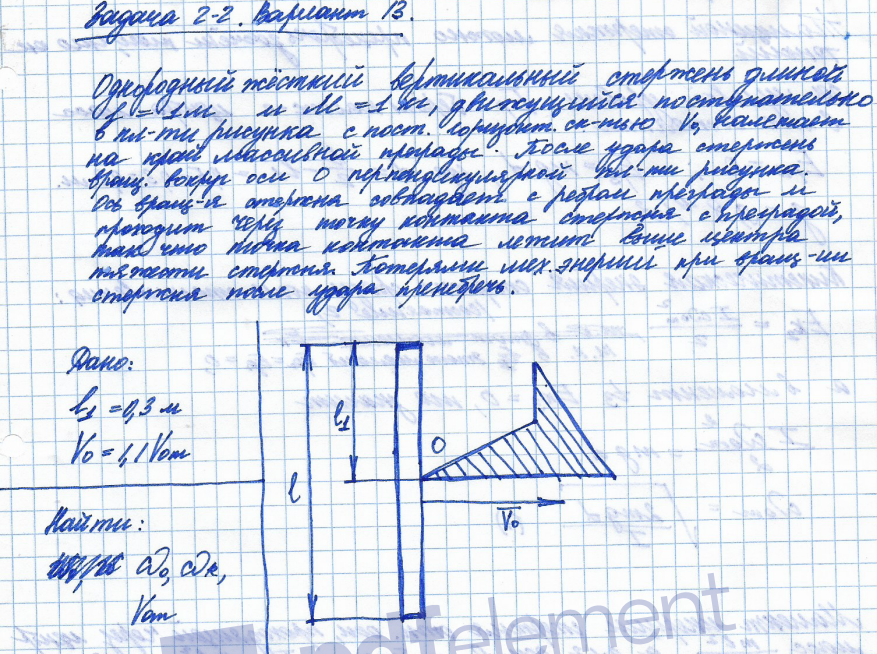 Задача 2-2. Вариант 13.
Однородный жёсткий вертикальный стержень длиной
l = 1 м и M = 1 кг, движущийся поступательно
в пл-ти рисунка с пост. горизонт. ск-тью V₀, налетает
на край массивной преграды. После удара стержень
вращ. вокруг оси O перпендикулярной пл-ти рисунка.
Ось вращ-я стержня совпадает с ребром преграды и
проходит через точку контакта стержня с преградой,
так что точка контакта лежит выше центра
тяжести стержня. Потерями мех. энергий при вращ-ии
стержня после удара пренебречь.
Дано:
l₁ = 0,3 м
V₀ = 1,1 Vₒₘ
Найти:
ω₀, ωₖ,
Vₒₘ
l
l₁
O
V₀
pdfelement